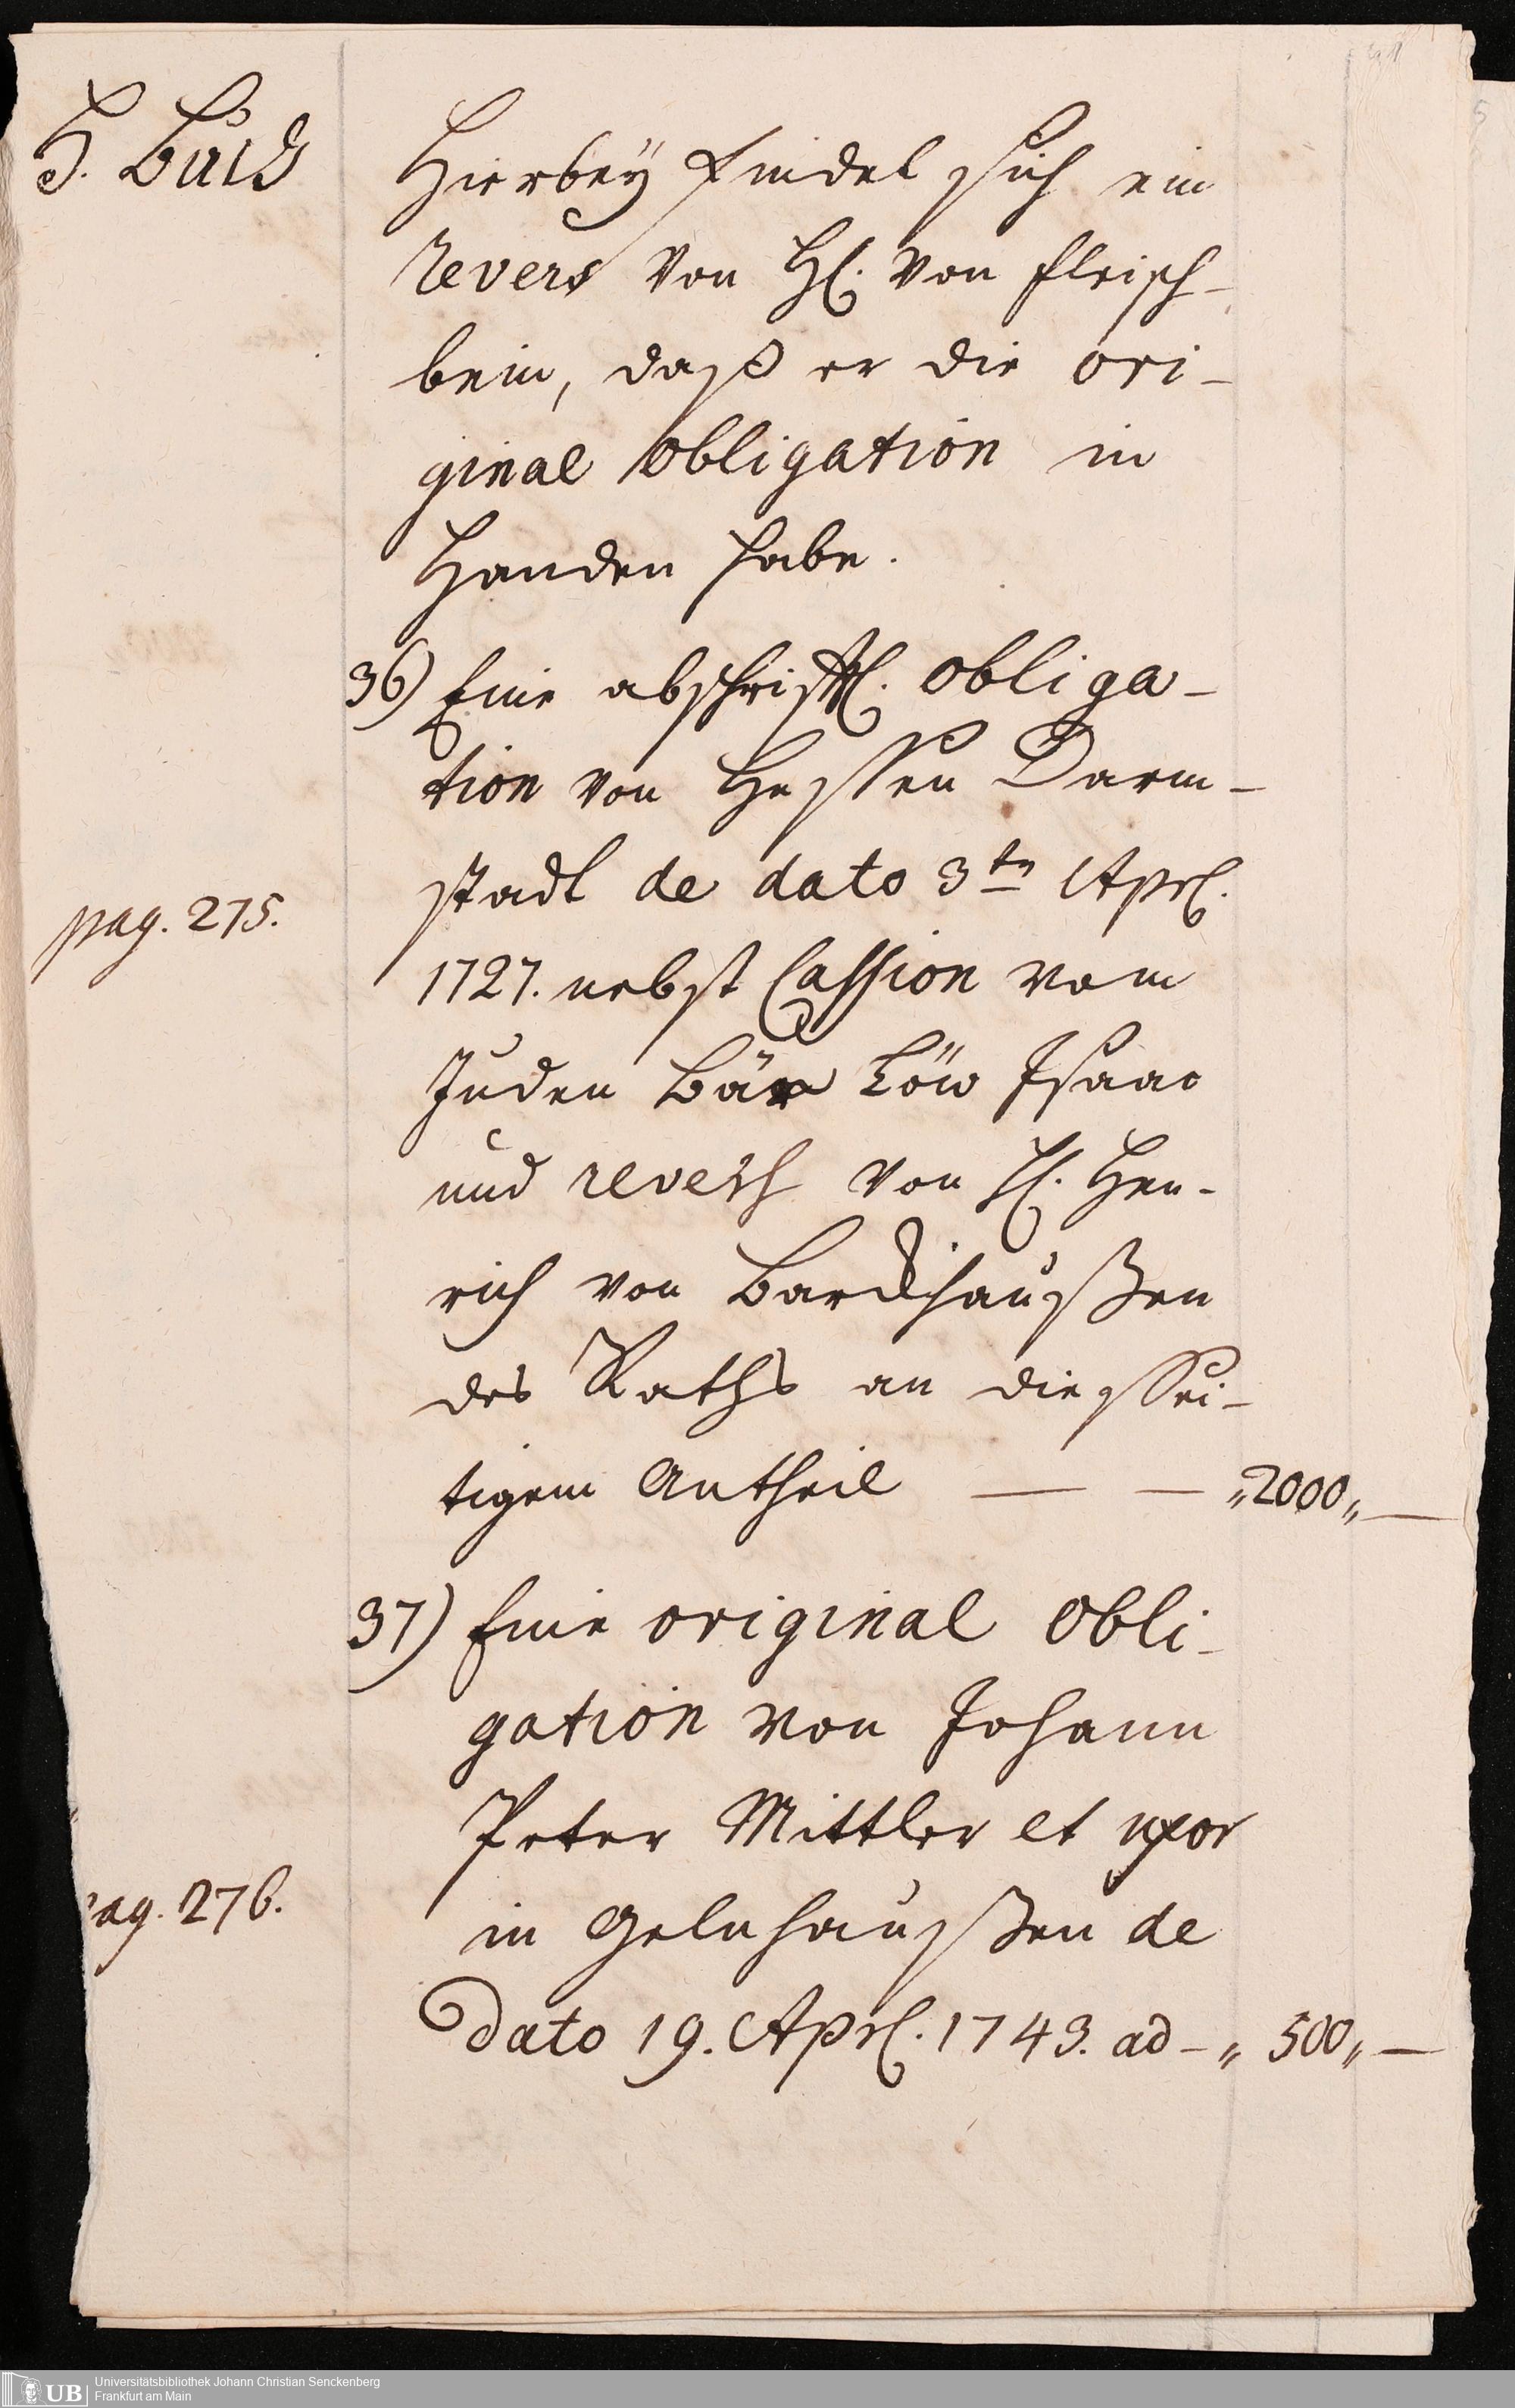 H. Buch
Hierbey findet sich ein
revers von H. von Fleisch-
bein, daß er die ori-
ginal obligation in
Handen habe.
36) Eine abschriftl. obliga-
tion von Hessen Darm-
stadt de dato 3ten Aprl.
pag. 275.
1727. nebst Cession vom
Juden Bär Löw Isaac
und revers von H. Hen-
rich von Barckhaußen
des Raths an diessei-
tigem Antheil — — „2000„—
37) Eine original obli-
gation von Johann
Peter Mittler et uxor
pag. 276.
in Gelnhaußen de
dato 19. Aprl. 1743. ad - „ 500„—
UB Universitätsbibliothek Johann Christian Senckenberg
Frankfurt am Main